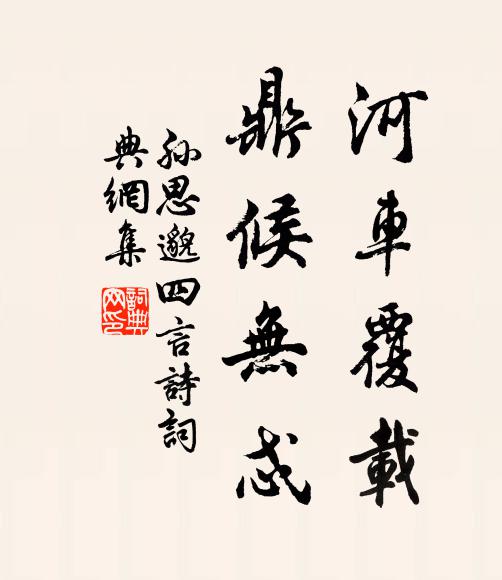 河車覆載
鼎候無忒
孫思邈四言詩詞
典網集
詞典
网印